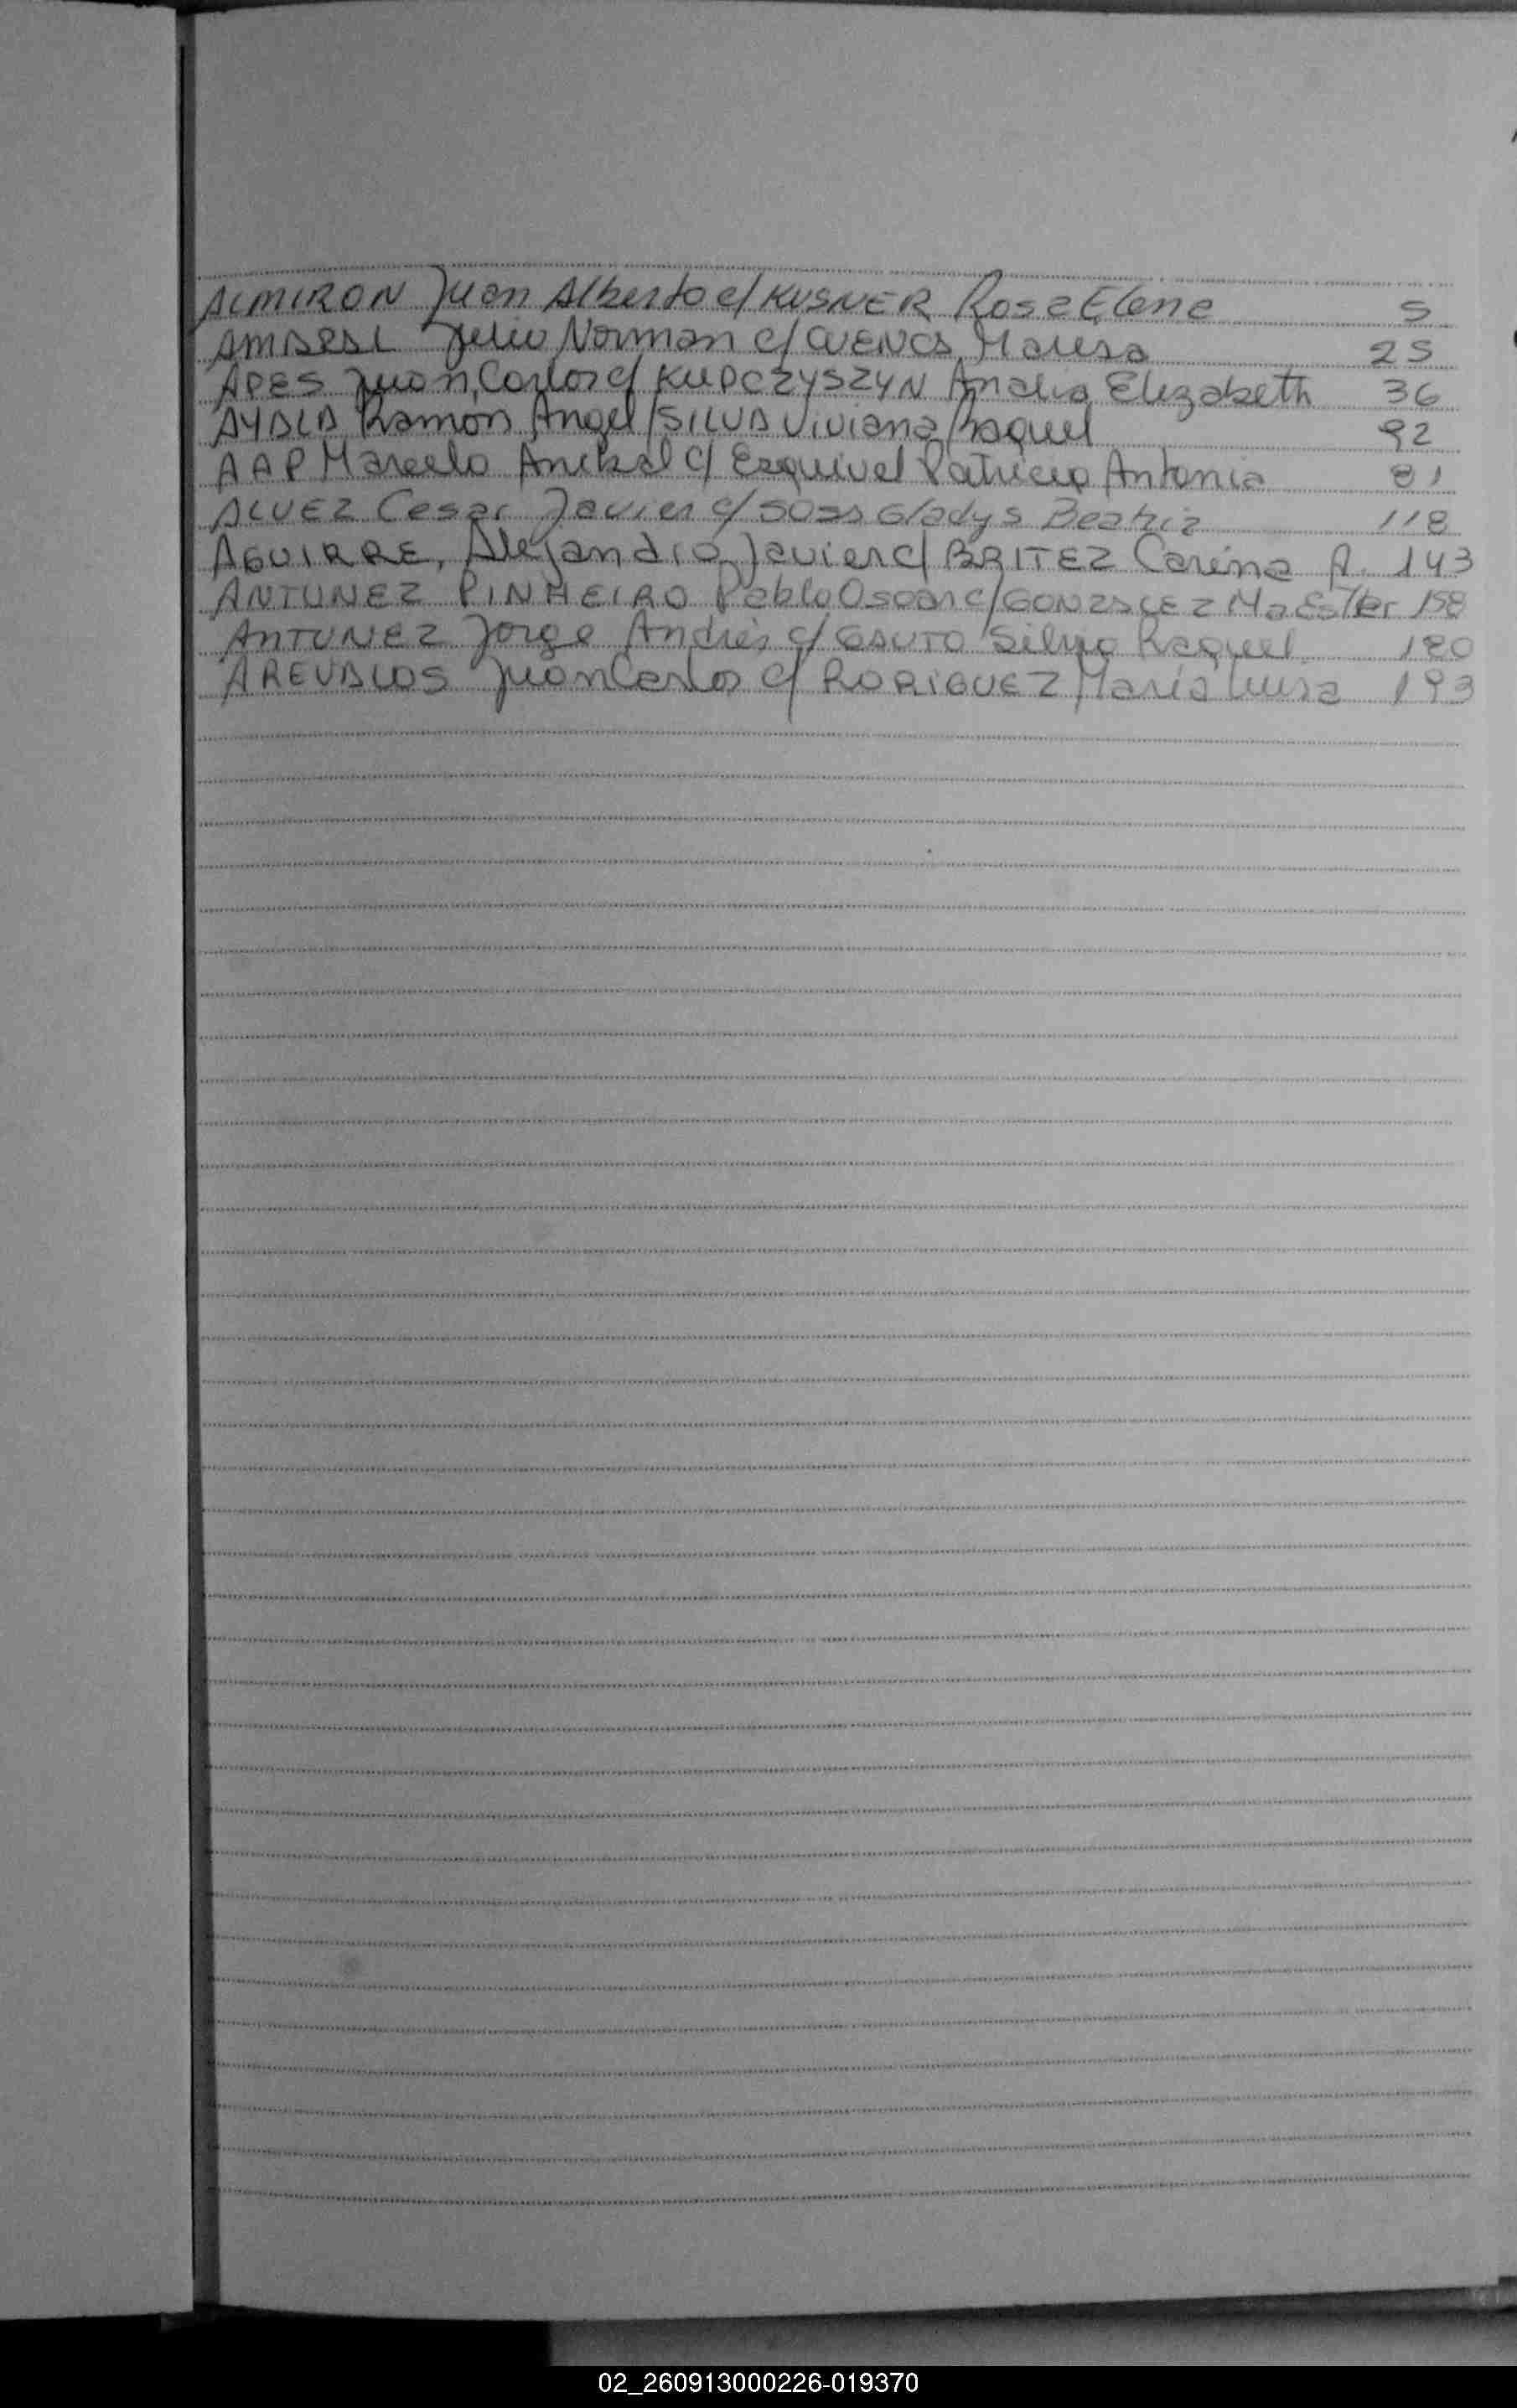 ALMIRON Juan Alberto c/ KUSNER Rosa Elena 5
AMARAL Julio Norman c/ CUENCA Marisa 25
APES Juan Carlos c/ KUPCZYSZYN Analia Elizabeth 36
AYALA Ramon Angel c/ SILVA Viviana Raquel 92
AAP Marcelo Anibal c/ Esquivel Patricia Antonia 81
ALVEZ Cesar Javier c/ SOSA Gladys Beatriz 118
AGUIRRE, Alejandro Javier c/ BRITEZ Carina A. 143
ANTUNEZ PINHEIRO Pablo Oscar c/ GONZALEZ Ma Ester 158
ANTUNEZ Jorge Andrés c/ Silvia Raquel 180
AREVALOS Juan Carlos c/ RORIGUEZ María Luisa 193
02_260913000226-019370